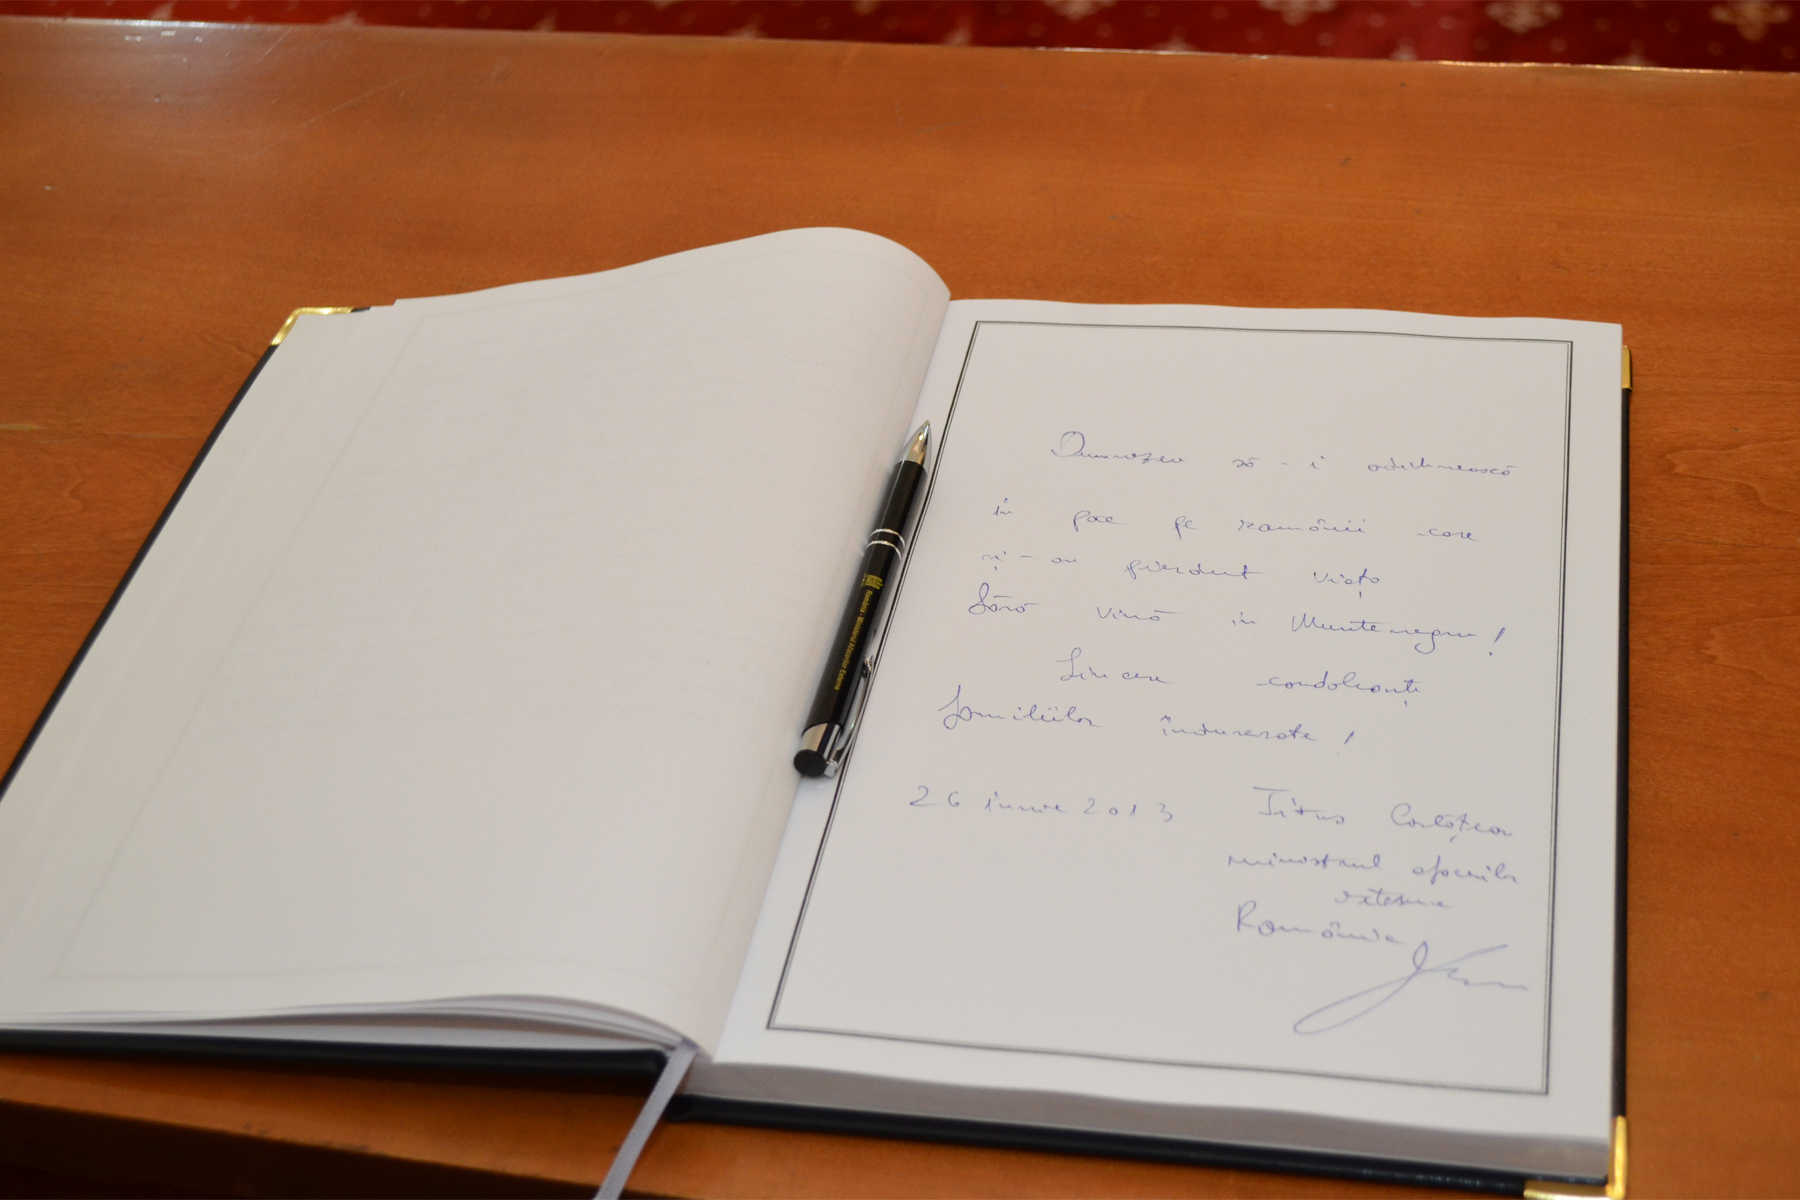 Dumnezeu să-i odihnească
în pace pe românii care
și-au pierdut viața
fără vină în Muntenegru!
Sincere condoleanțe
familiilor îndurerate!
26 iunie 2013 Titus Corlățean
ministrul afacerilor
externe
România
România - Ministerul Afacerilor Externe